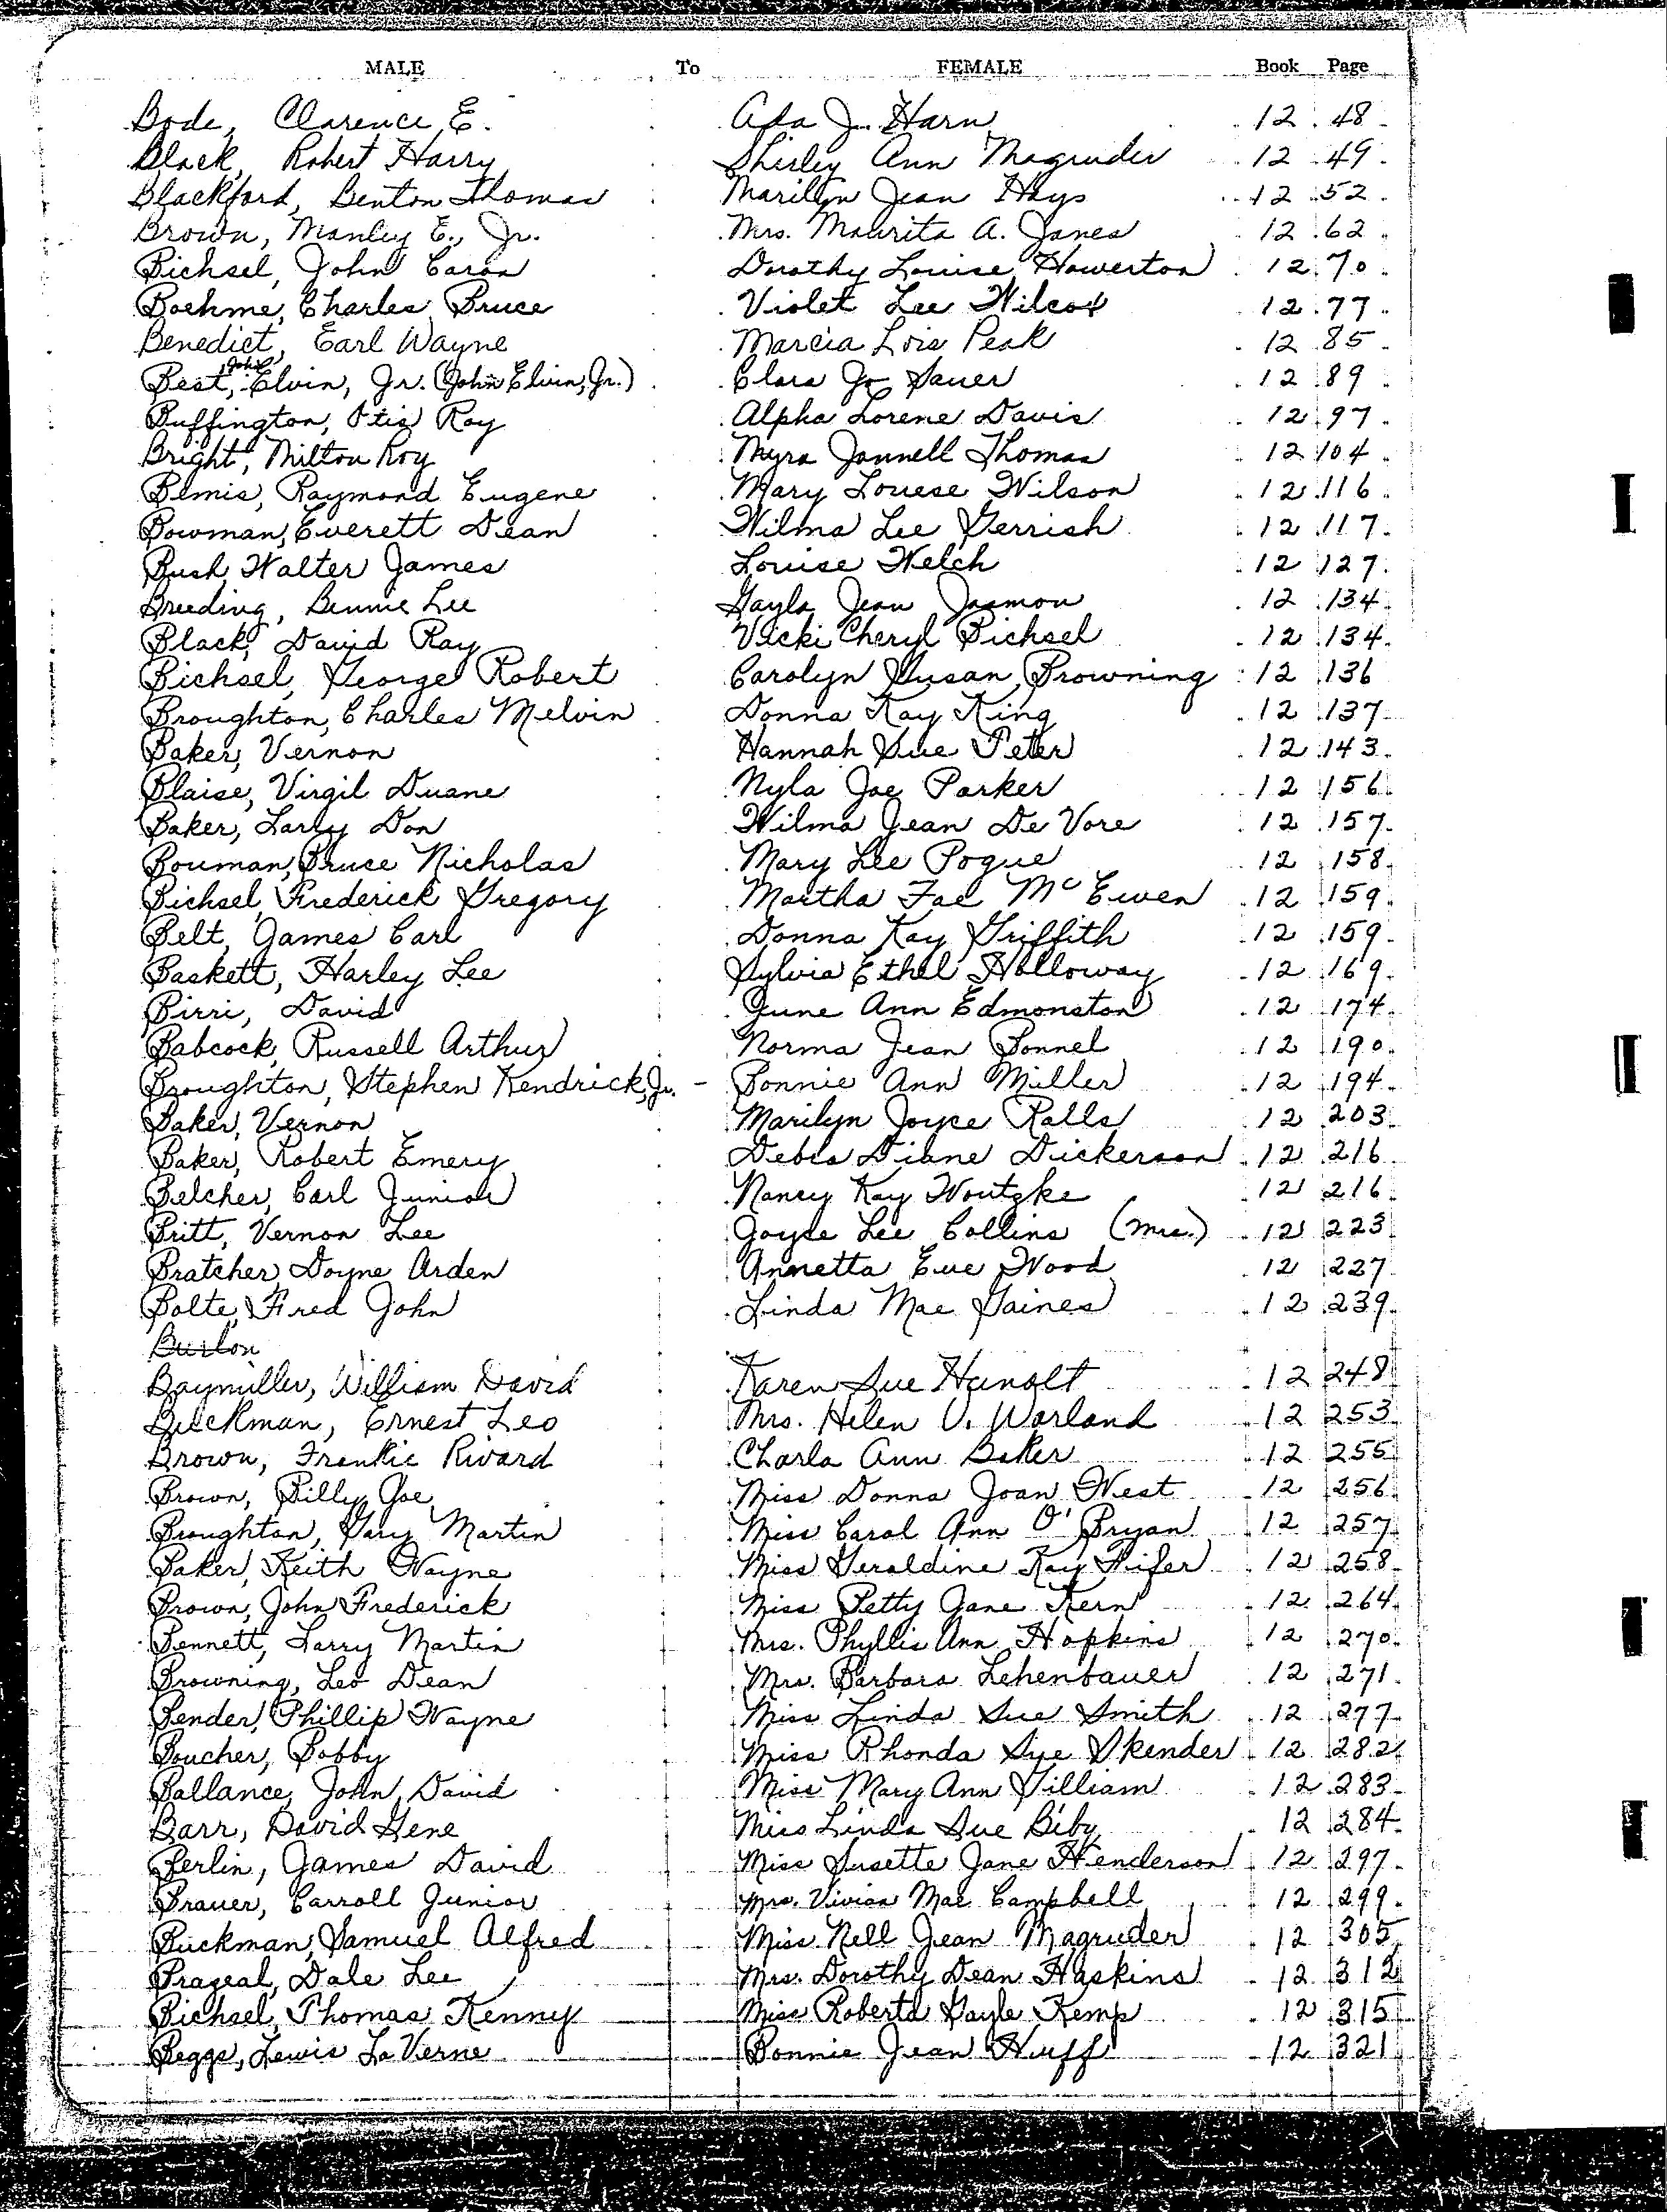 MALE To FEMALE Book Page
Bode, Clarence E. Ada J. Harn 12 48
Black, Robert Harry Shirley Ann Magruder 12 49
Blackford, Benton Thomas Marilyn Jean Hays 12 52
Brown, Manley E., Jr. Mrs. Maurita A. Janes 12 62
Bichsel, John Caron Dorothy Louise Howerton 12 70
Boehme, Charles Bruce Violet Lee Wilcox 12 77
Benedict, Earl Wayne Marcia Lois Peak 12 85
Best, John Elvin, Jr. (John Elvin, Jr.) Clara Jo Sauer 12 89
Buffington, Otis Ray Alpha Lorene Davis 12 97
Bright, Milton Roy Myra Jannell Thomas 12 104
Bemis, Raymond Eugene Mary Louese Wilson 12 116
Bowman, Everett Dean Wilma Lee Gerrish 12 117
Bush, Walter James Louise Welch 12 127
Breeding, Bennie Lee Gayla Jean Jasmon 12 134
Black, David Ray Vicki Cheryl Bichsel 12 134
Bichsel, George Robert Carolyn Susan Browning 12 136
Broughton, Charles Melvin Donna Kay King 12 137
Baker, Vernon Hannah Sue Peter 12 143
Blaise, Virgil Duane Nyla Joe Parker 12 156
Baker, Larry Don Wilma Jean De Vore 12 157
Bouman, Bruce Nicholas Mary Lee Pogue 12 158
Bichsel, Frederick Gregory Martha Fae McEwen 12 159
Belt, James Carl Donna Kay Griffith 12 159
Baskett, Harley Lee Sylvia Ethel Holloway 12 169
Birri, David June Ann Edmonston 12 174
Babcock, Russell Arthur Norma Jean Bonnel 12 190
Broughton, Stephen Kendrick, Jr. - Bonnie Ann Miller 12 194
Baker, Vernon Marilyn Joyce Ralls 12 203
Baker, Robert Emery Debra Diane Dickerson 12 216
Belcher, Carl Junior Nancy Kay Woutzke 12 216
Britt, Vernon Lee Joyce Lee Collins (Mrs.) 12 223
Bratcher, Doyne Arden Annetta Eue Wood 12 227
Bolte, Fred John Linda Mae Gaines 12 239
Burton
Baymiller, William David Karen Sue Hunolt 12 248
Buckman, Ernest Leo Mrs. Helen V. Worland 12 253
Brown, Frankie Rivard Charla Ann Baker 12 255
Brown, Billy Joe Miss Donna Joan West 12 256
Broughton, Gary Martin Miss Carol Ann O'Bryan 12 257
Baker, Keith Wayne Miss Geraldine Kay Fifer 12 258
Brown, John Frederick Miss Betty Jane Kern 12 264
Bennett, Larry Martin Mrs. Phyllis Ann Hopkins 12 270
Browning, Leo Dean Mrs. Barbara Lehenbauer 12 271
Bender, Phillip Wayne Miss Linda Sue Smith 12 277
Boucher, Bobby Miss Rhonda Sye Skender 12 282
Ballance, John David Miss Mary Ann Gilliam 12 283
Barr, David Gene Miss Linda Sue Biby 12 284
Berlin, James David Miss Susette Jane Henderson 12 297
Brauer, Carroll Junior Mrs. Vivian Mae Campbell 12 299
Buckman, Samuel Alfred Miss Nell Jean Magruder 12 305
Brazeal, Dale Lee Mrs. Dorothy Dean Haskins 12 312
Bichsel, Thomas Kenny Miss Roberta Gayle Kemp 12 315
Beggs, Lewis La Verne Bonnie Jean Huff 12 321